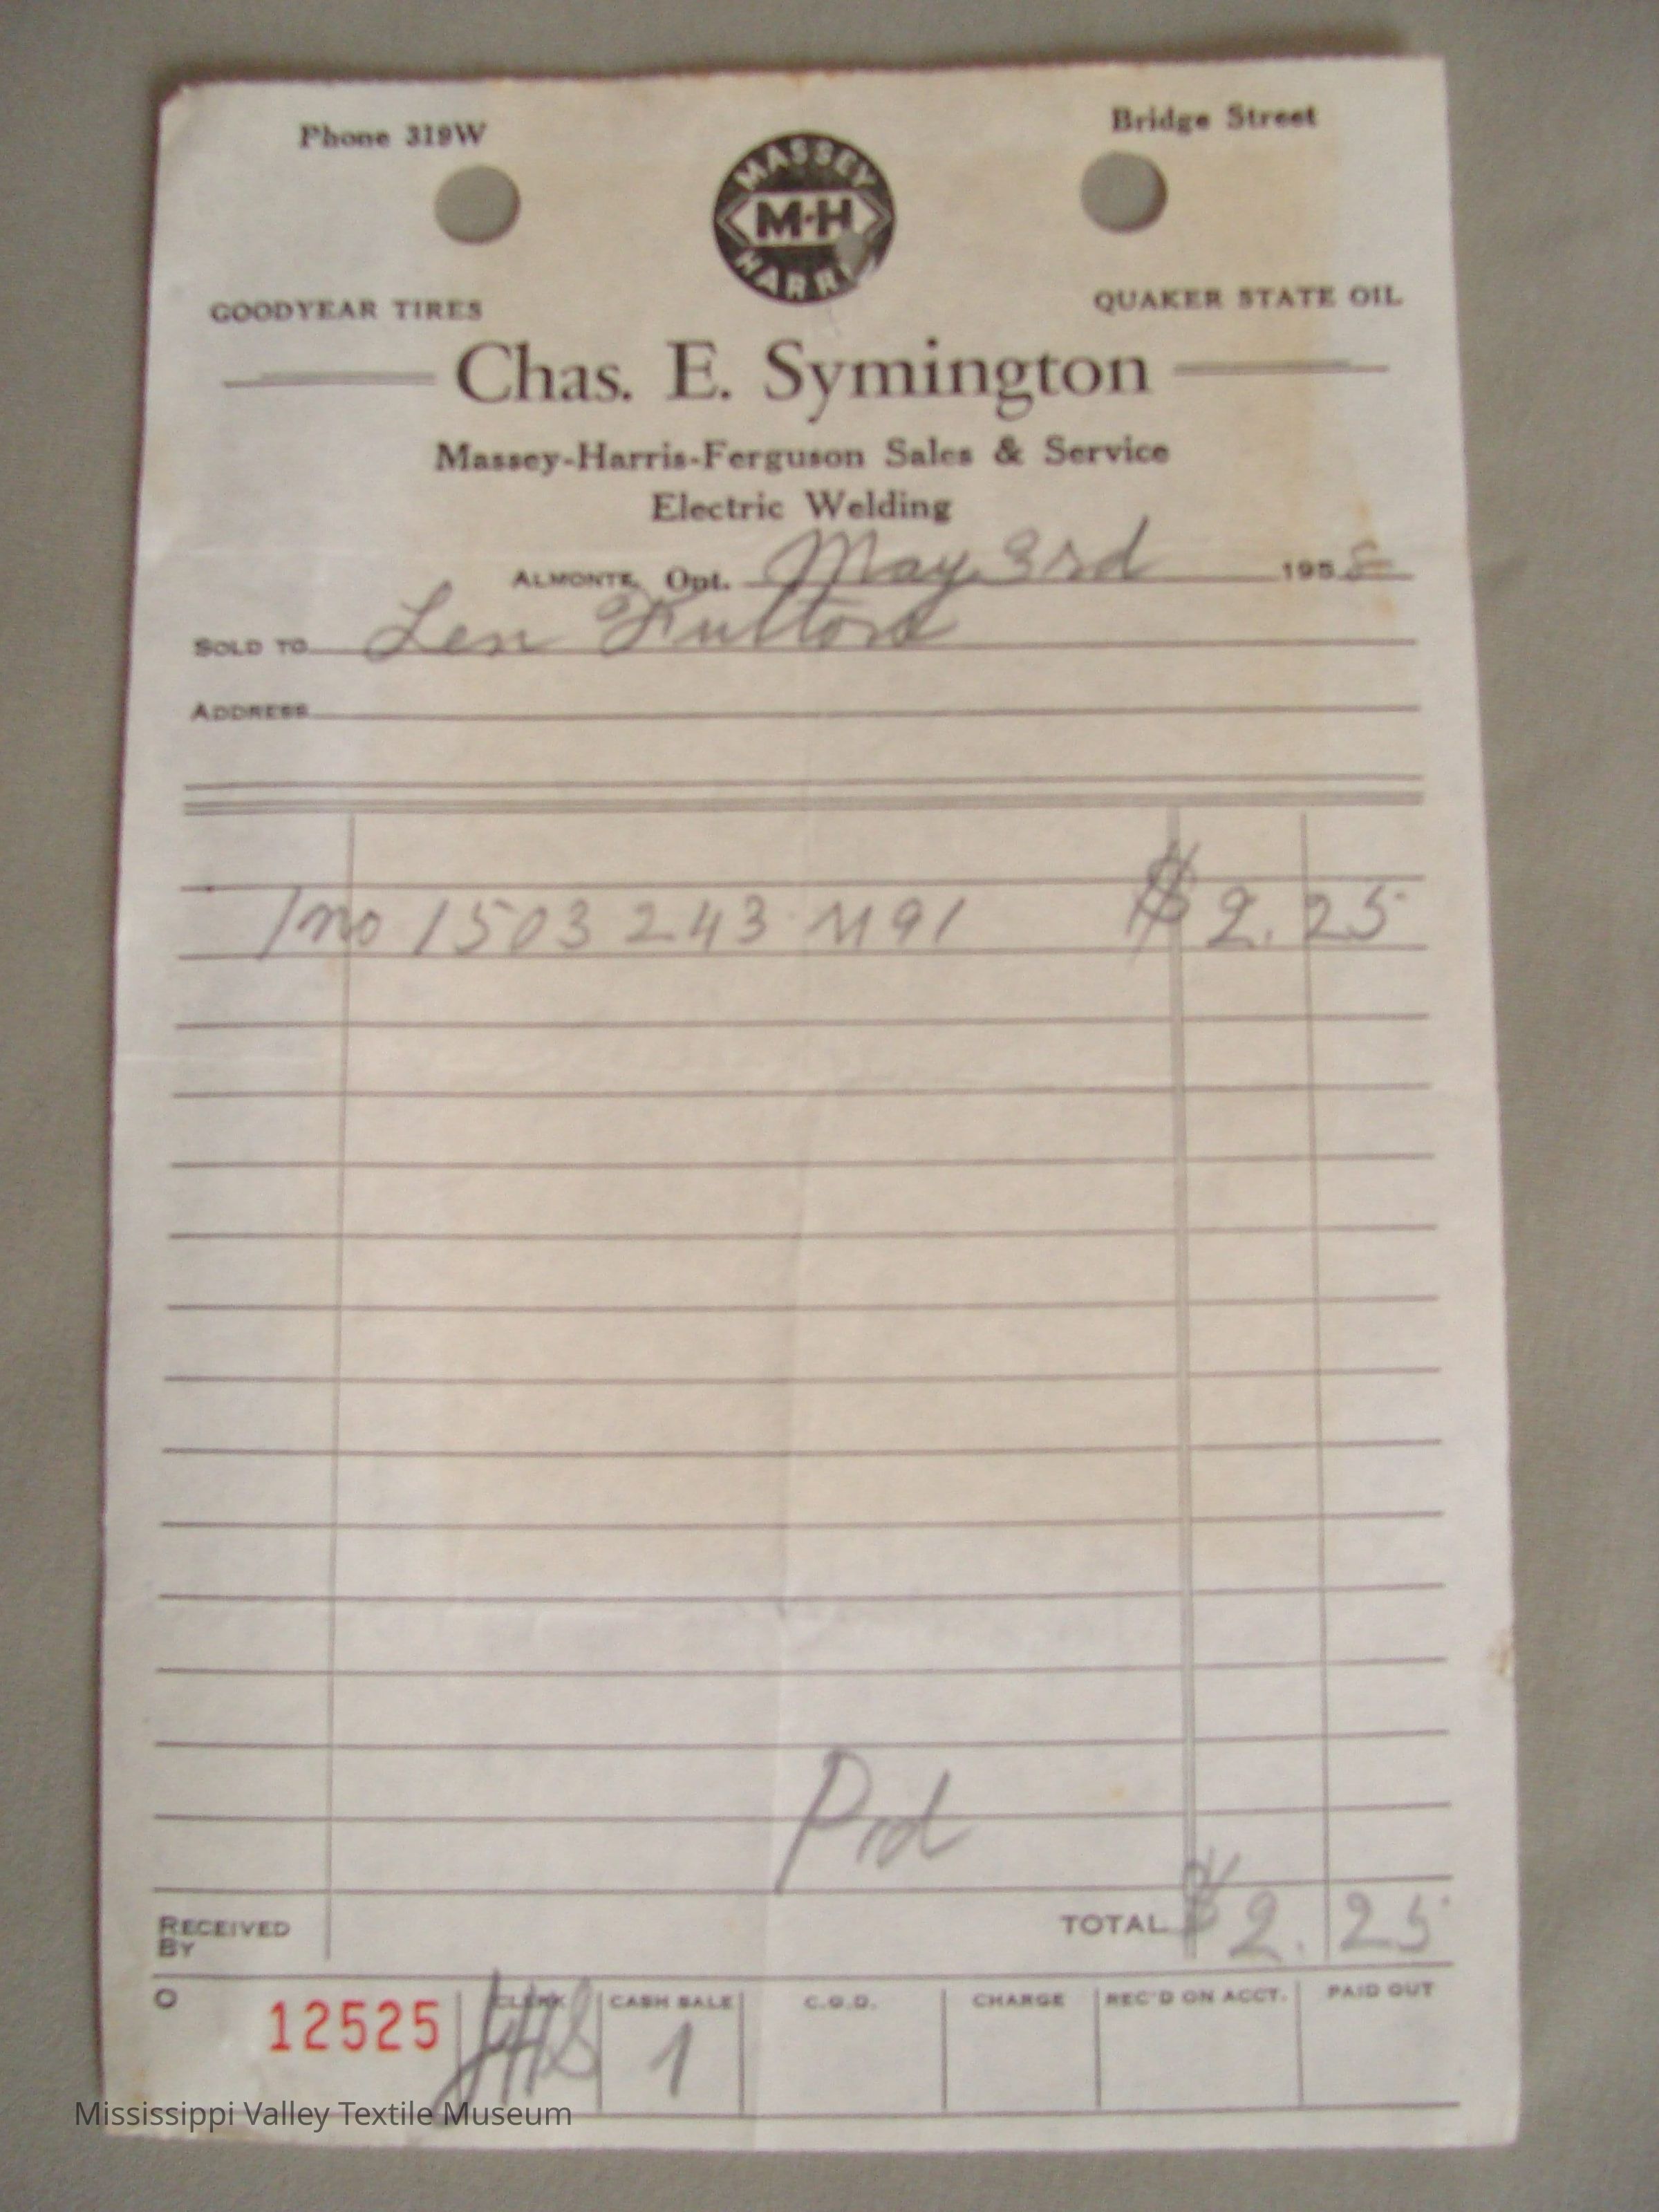 Phone 319W
Bridge Street
MASSEY
M-H
HARRI
GOODYEAR TIRES
QUAKER STATE OIL
Chas. E. Symington
Massey-Harris-Ferguson Sales & Service
Electric Welding
ALMONTE, Ont. May 3rd 1958
SOLD TO Len Fulton
ADDRESS
1 no 1503 243 M91 $2.25
Pd
RECEIVED BY
TOTAL $2.25
O 12525 CLERK CASH SALE C.O.D. CHARGE REC'D ON ACCT. PAID OUT
1
Mississippi Valley Textile Museum